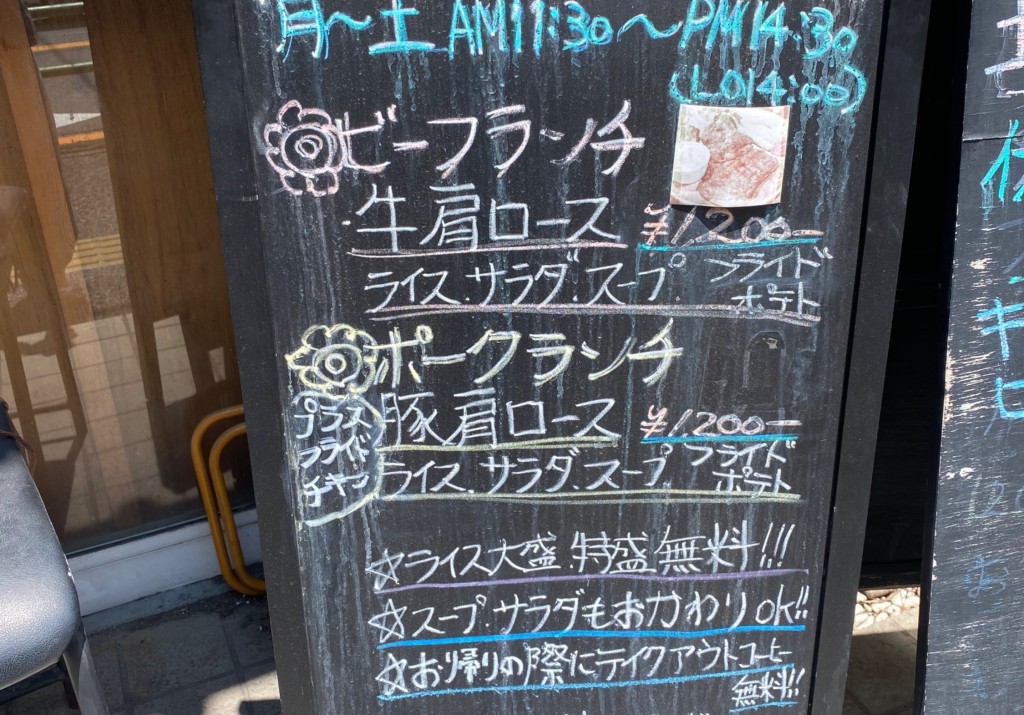 月～土 AM11:30～PM14:30
(LO14:00)
ビーフランチ
牛肩ロース ¥1200-
ライス.サラダ.スープ. フライドポテト
ポークランチ
プラスフライドチキン
豚肩ロース ¥1200-
ライス.サラダ.スープ. フライドポテト
☆ライス大盛.特盛無料!!!
☆スープ.サラダもおかわりOK!!
☆お帰りの際にテイクアウトコーヒー
無料!!